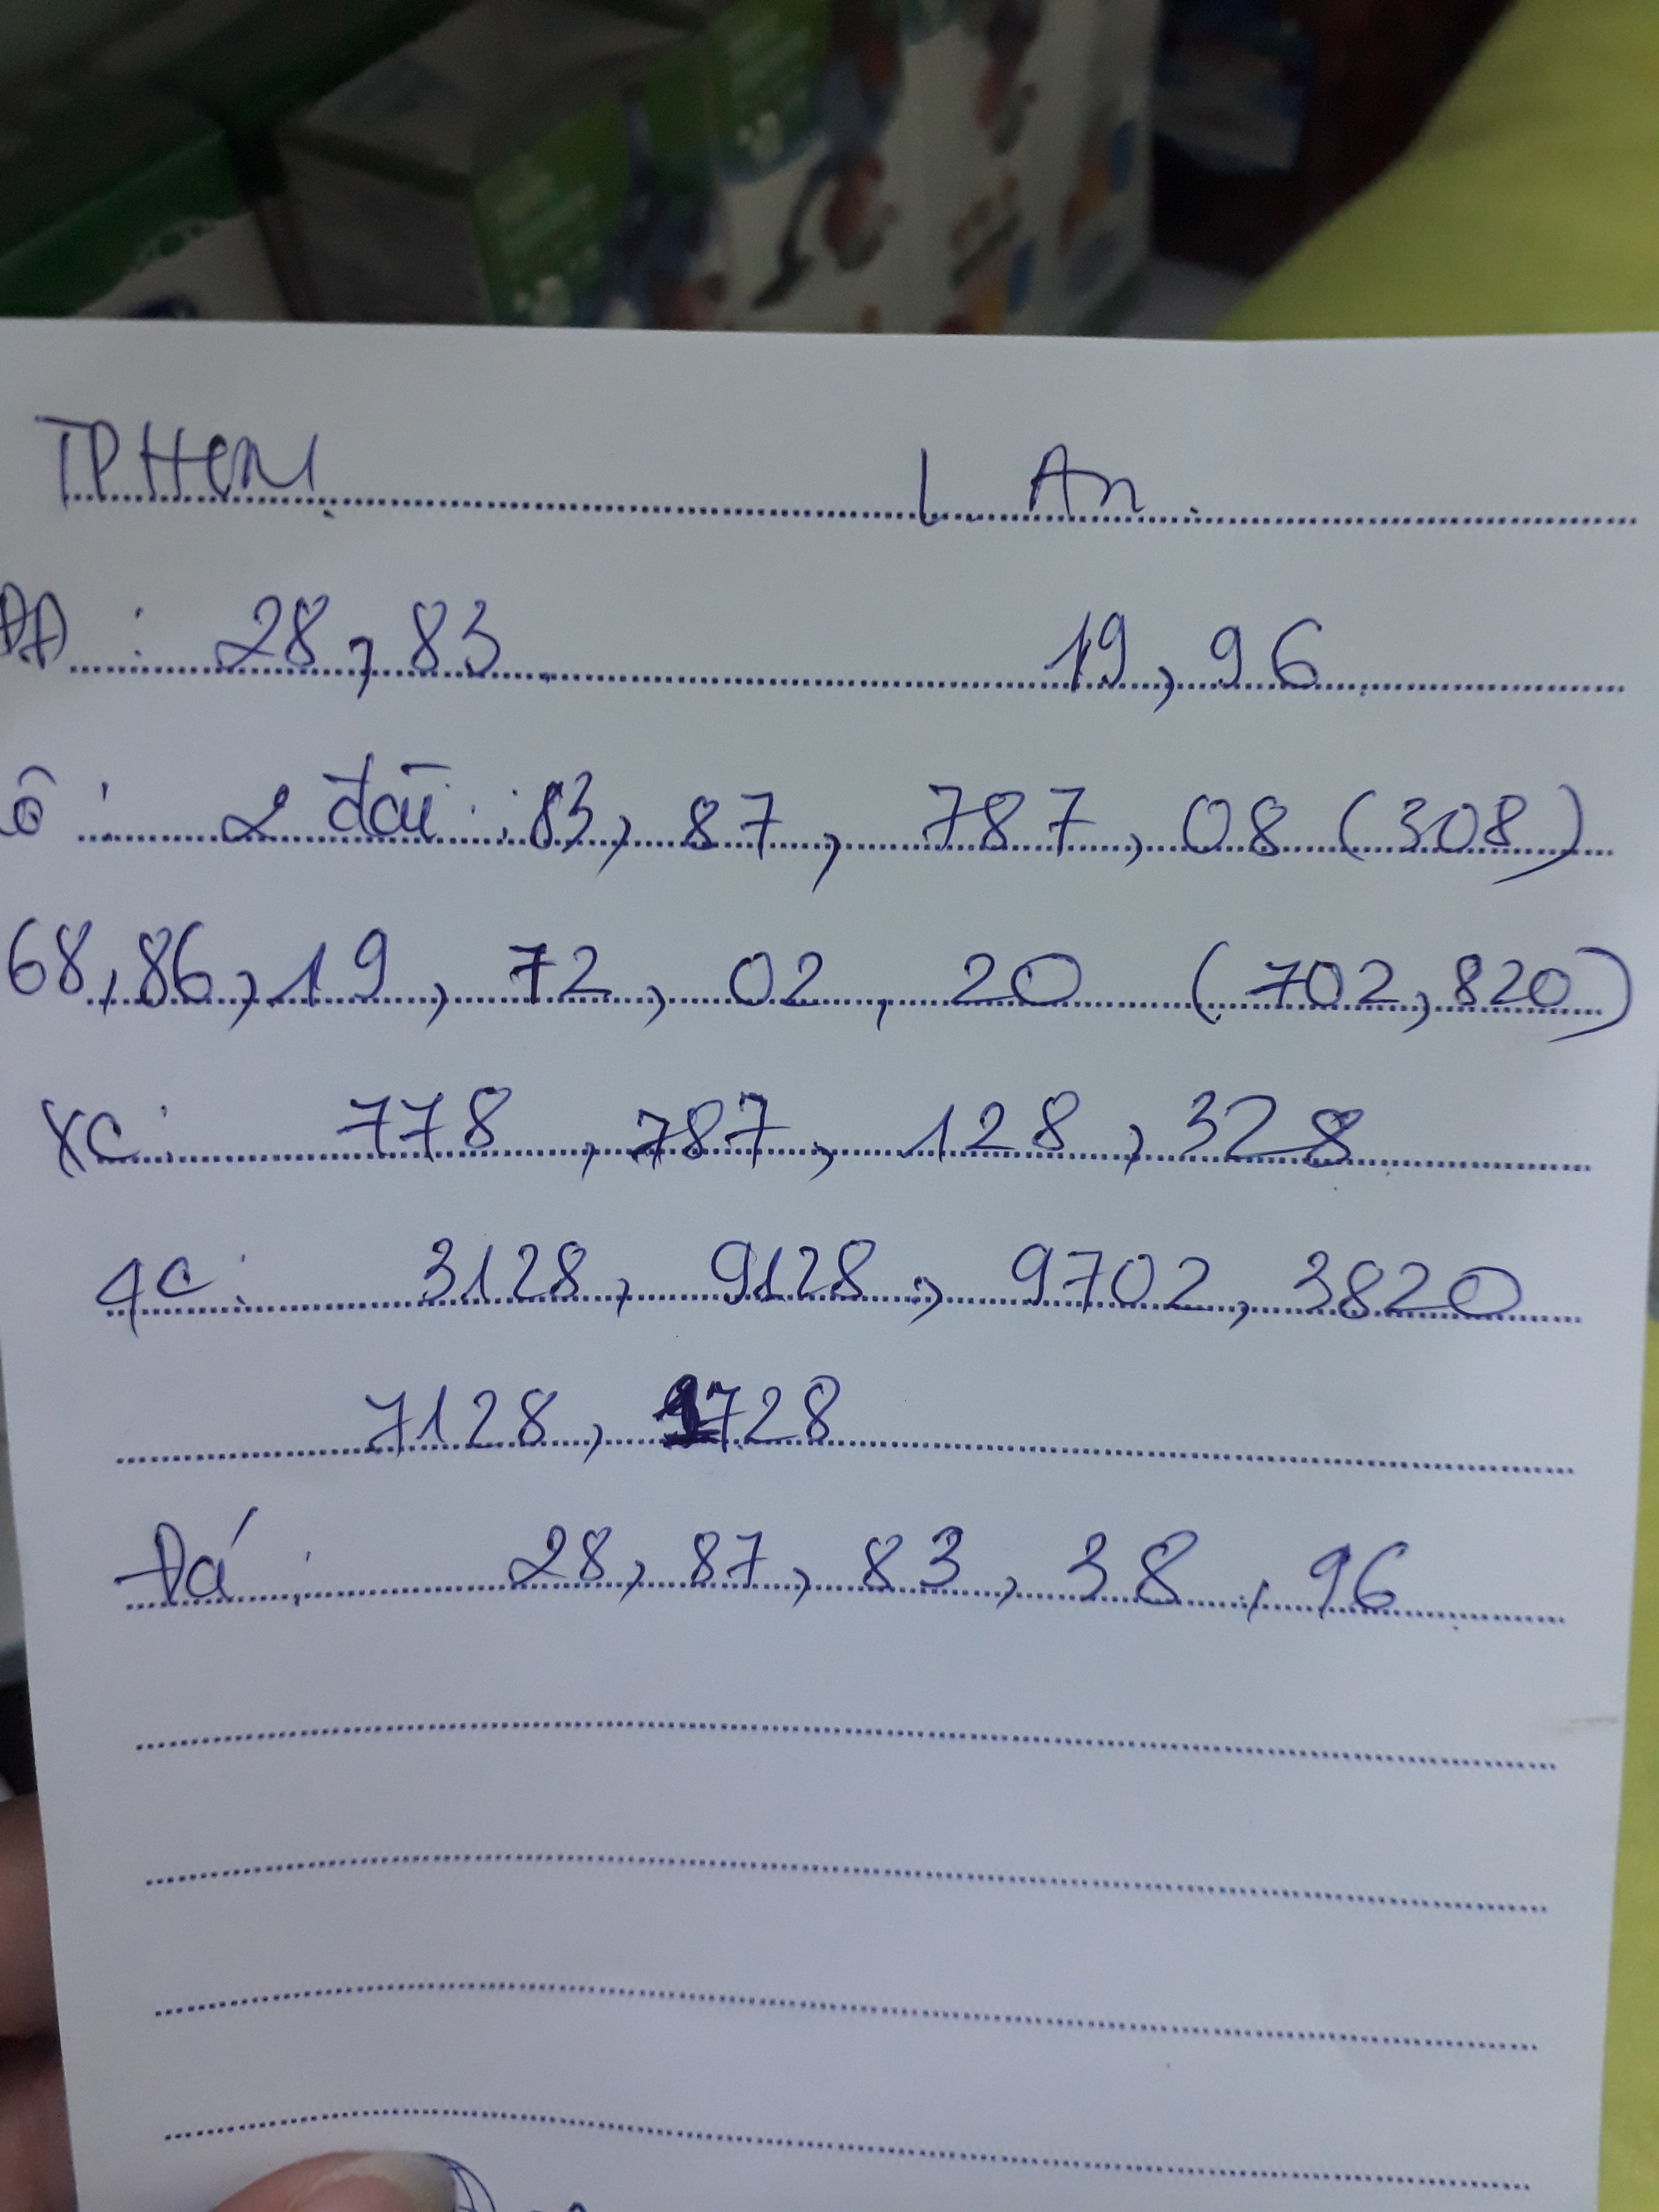 TPHCM. L. An.
ĐĐ : 28, 83 19, 96
Lô : 2 đài : 83, 87, 787, 08 (308)
68, 86, 19, 72, 02, 20 (702, 820)
XC : 778, 787, 128, 328
4C : 3128, 9128, 9702, 3820
7128, 1728
Đá : 28, 87, 83, 38, 96